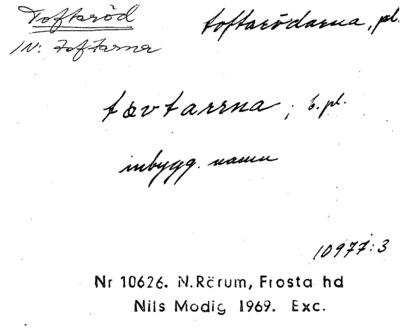 Toftaröd toftarödarna, pl.
IN: Toftarna
tovtarrna, b. pl.
inbygg. namn
10977:3
Nr 10626. N.Rörum, Frosta hd
Nils Modig 1969. Exc.